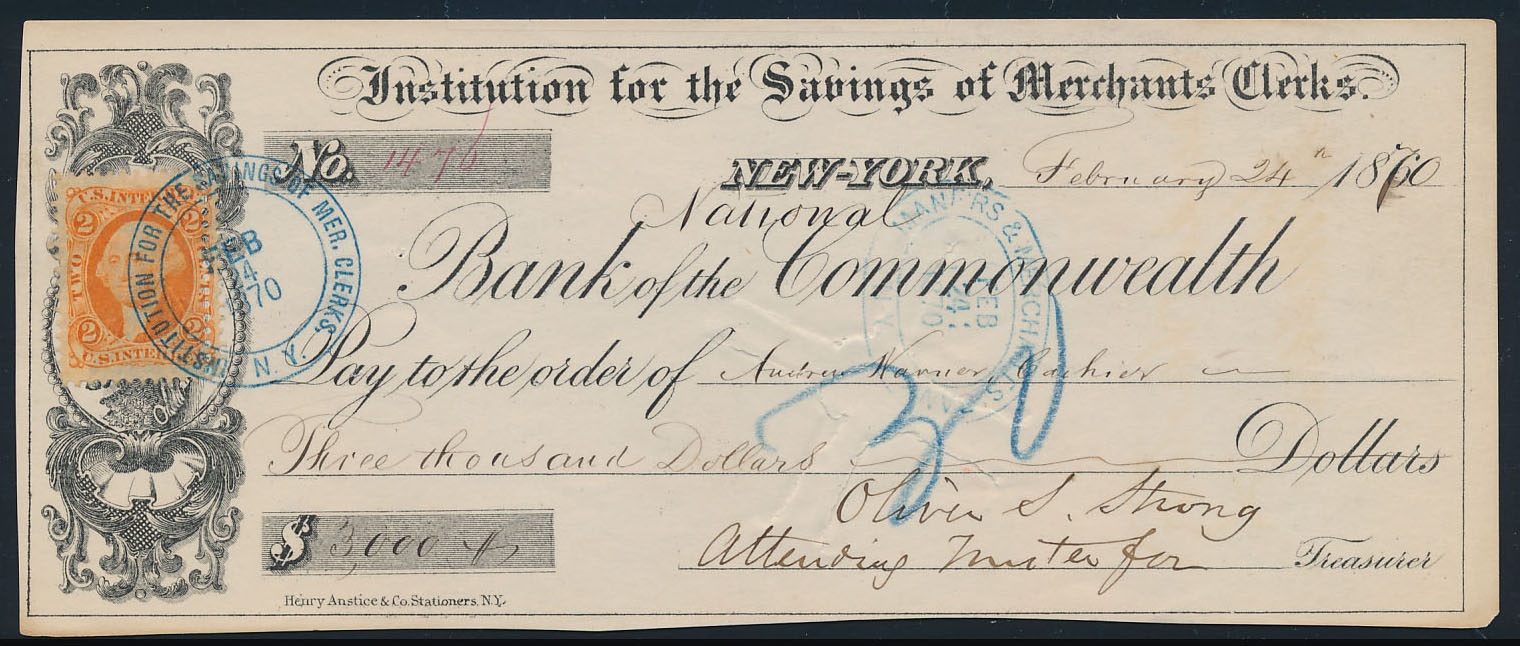 Institution for the Savings of Merchants Clerks.
No. 1476
NEW-YORK, February 24th 1870
National
Bank of the Commonwealth
Pay to the order of Andrew Warner, Cashier
Three thousand Dollars Dollars
$ 3,000
Oliver S. Strong
Attending Trustee for Treasurer
Henry Anstice & Co. Stationers, N.Y.
U.S. INTER
2 2
TWO
2 2
U.S. INTER
INSTITUTION FOR THE SAVINGS OF MER. CLERKS. N.Y.
FEB
24
70
& MERCHANTS
FEB
24
70